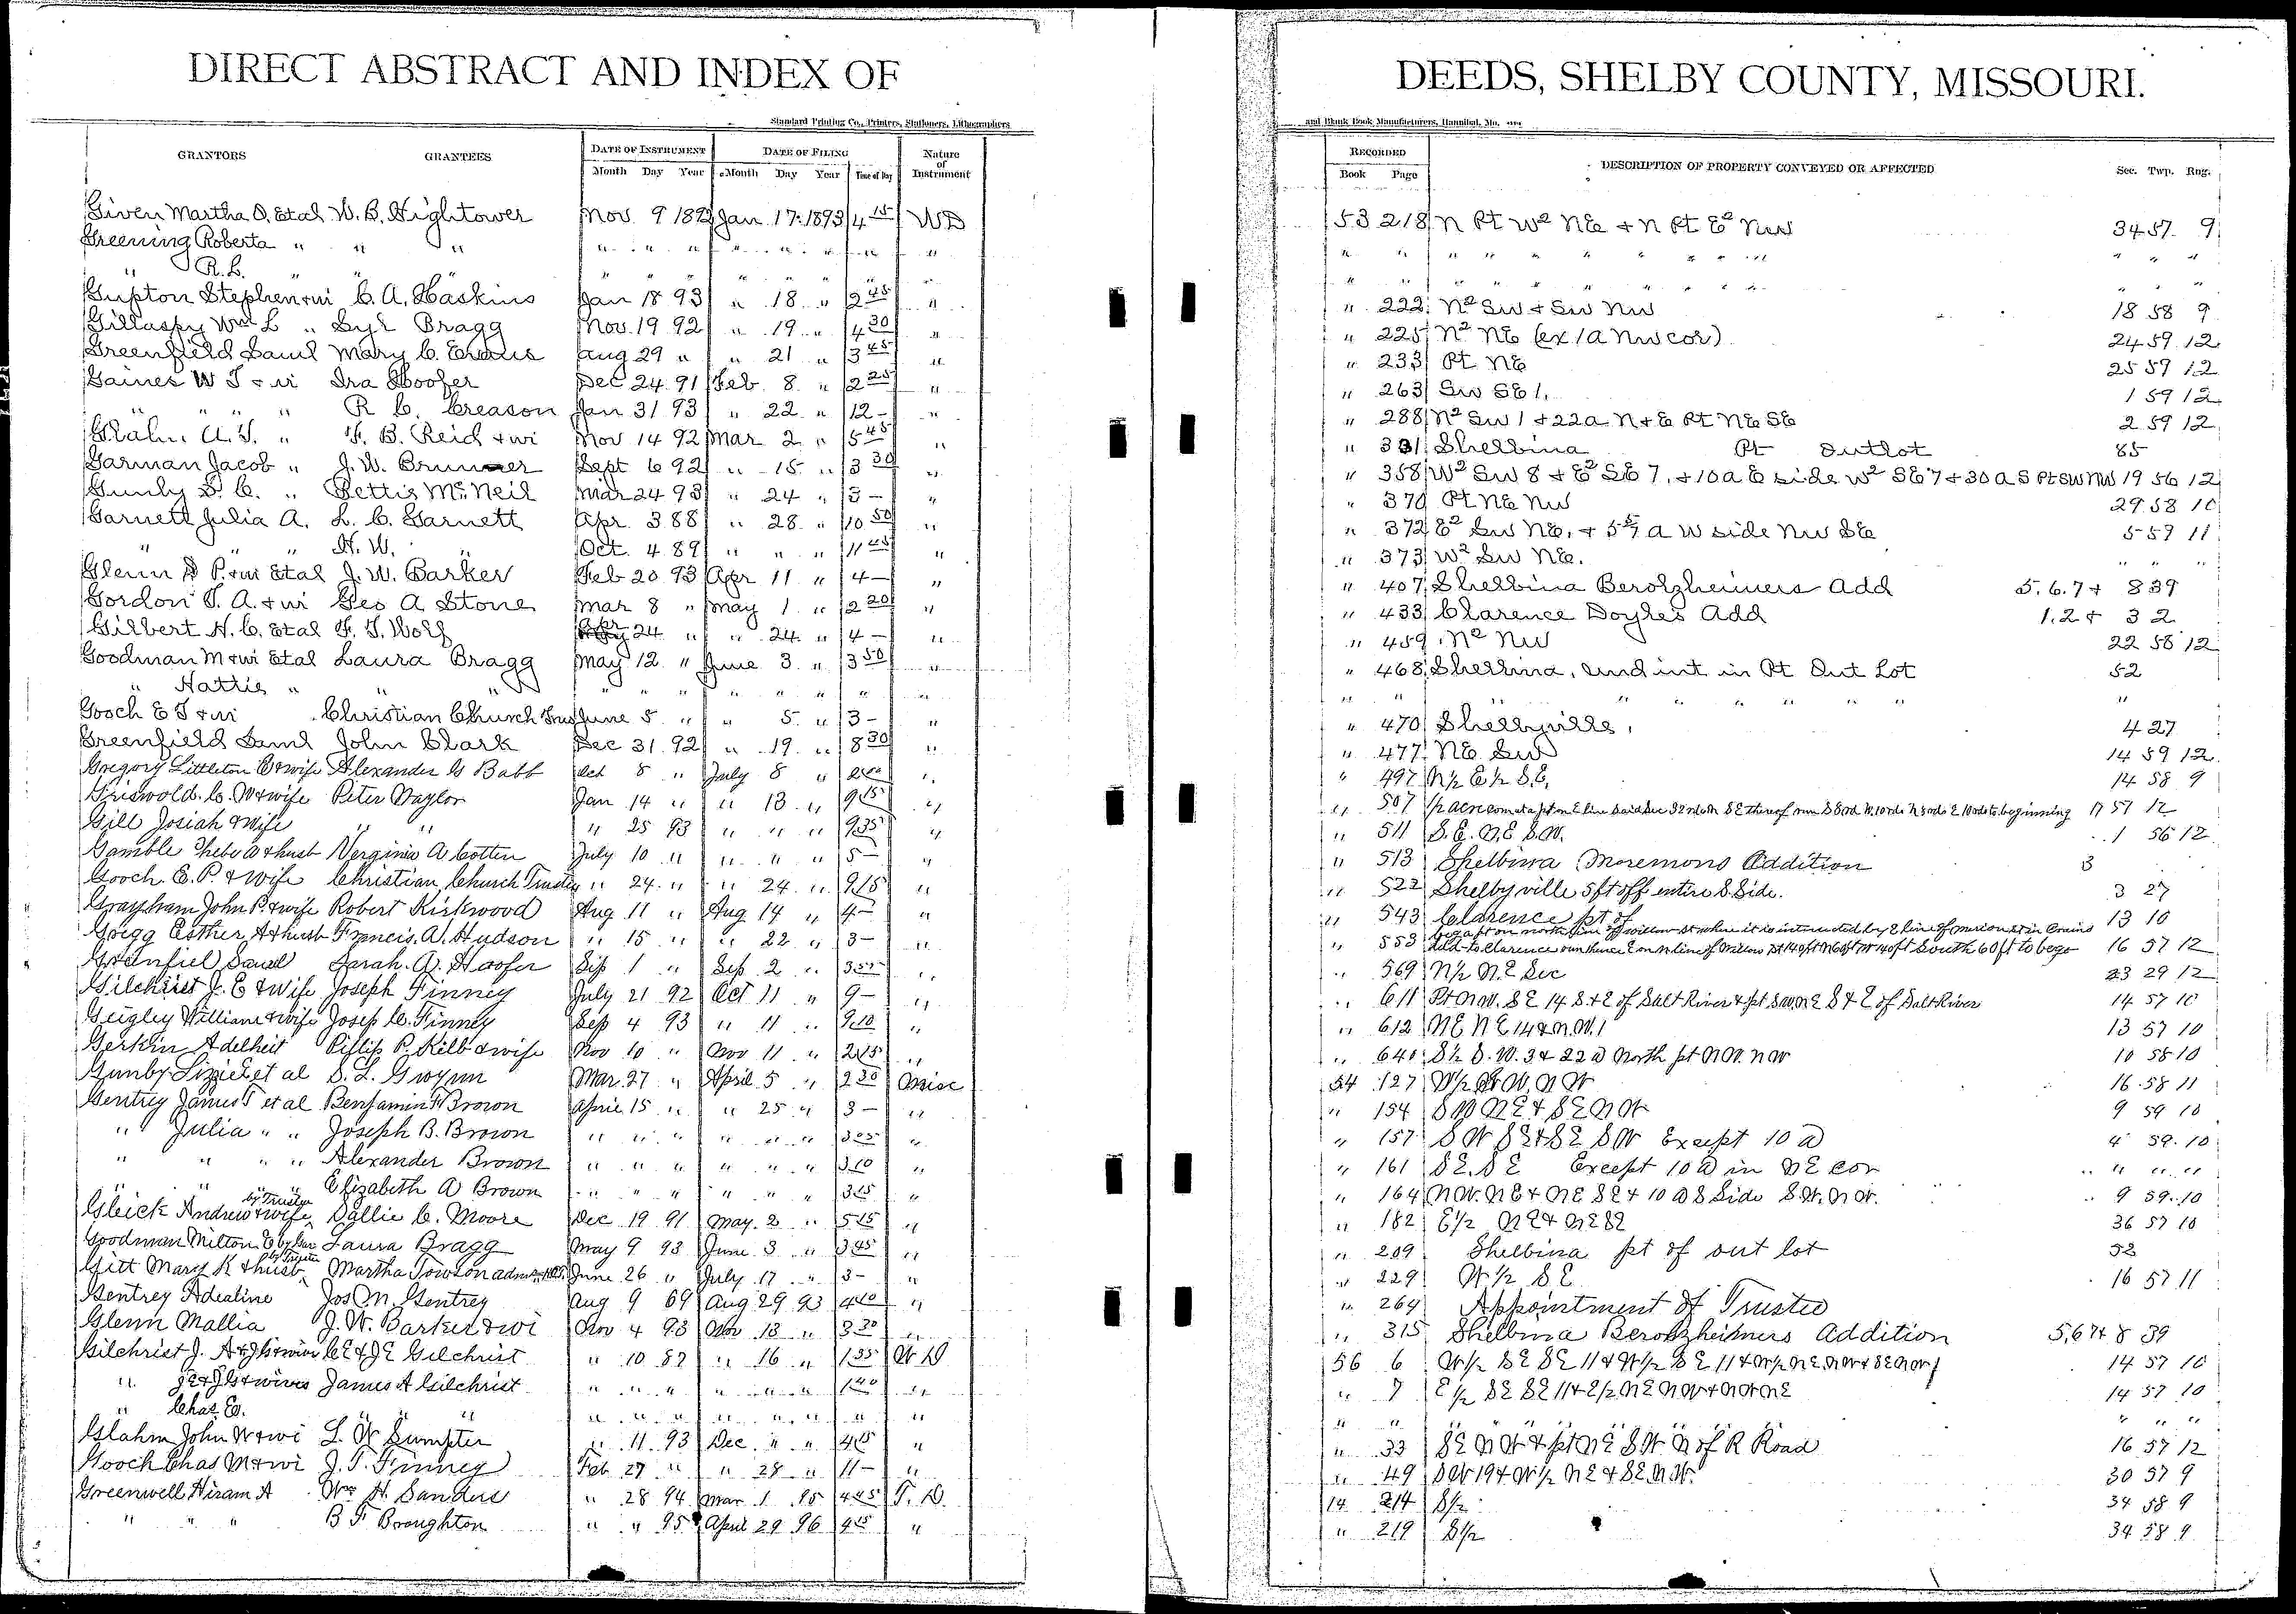 DIRECT ABSTRACT AND INDEX OF
Standard Printing Co., Printers, Stationers, Lithographers
GRANTORS GRANTEES DATE OF INSTRUMENT DATE OF FILING Nature of Instrument
Month Day Year Month Day Year Time of Day
Given Martha O. Etal W. B. Hightower Nov. 9 1892 Jan 17 1893 4 15 WD
Greening Roberta " " " " " " " " " " "
" R. L. " " " " " " " " "
Gupton Stephen & wi C. A. Haskins Jan 18 93 " 18 " 2 45 "
Gillaspy Wm L " Syl Bragg Nov. 19 92 " 19 " 4 30 "
Greenfield Saml Mary C. Evans Aug 29 " " 21 " 3 45 "
Gaines W T & wi Ira Hoofer Dec 24 91 Feb. 8 " 2 25 "
" " " " R C. Creason Jan 31 93 " 22 " 12 - "
Glahn A. T. " F. B. Reid & wi Nov 14 92 Mar 2 " 5 45 "
Garman Jacob " J. W. Brunner Sept 6 92 " 15 " 3 30 "
Gunby S. C. " Pettis McNeil Mar 24 93 " 24 " 3 - "
Garnett Julia A. L. C. Garnett Apr. 3 88 " 28 " 10 50 "
" " " H. W. " Oct. 4 89 " " " 11 45 "
Glenn D P. & wi Etal J. W. Barker Feb 20 93 Apr 11 " 4 - "
Gordon T. A. & wi Geo A Stone Mar 8 " May 1 " 2 20 "
Gilbert N. C. Etal F. T. Wolf Apr 24 " " 24 " 4 - "
Goodman M & wi Etal Laura Bragg May 12 " June 3 " 3 50 "
" Hattie " " " " " " " " " " "
Gooch E T & wi Christian Church Trus June 5 " " 5 " 3 - "
Greenfield Saml John Clark Dec 31 92 " 19 " 8 30 "
Gregory Littleton C & wife Alexander G Babb Oct 8 " July 8 " "
Griswold C. W & wife Peter Naylor Jan 14 " " 13 " 9 15 "
Gill Josiah & wife " " " 25 93 " " " 9 35 "
Gamble Phebe A & husb Verginia A Cotten July 10 " " " " 5 - "
Gooch E. P. & wife Christian Church Trustee " 24 " " 24 " 9 15 "
Grayham John P. & wife Robert Kirkwood Aug 11 " Aug 14 " 4 - "
Grigg Esther A & husb Francis. A. Hudson " 15 " " 22 " 3 - "
Greenfiel Samuel Sarah. A. Hoofer Sep 1 " Sep 2 " "
Gilchrist J. E & wife Joseph Finney July 21 92 Oct 11 " 9 - "
Geigley William & wife Josep C. Finney Sep 4 93 " 11 " 9 10 "
Gerkin Adelheit P. Kilb & wife Nov 10 " Nov 11 " 2 15 "
Gunby Lizzie et al S. L. Gwynn Mar 27 " April 5 " 2 30 Misc
Gentrey James T et al Benjamin F Brown April 15 " " 25 " 3 - "
" Julia " " Joseph B. Brown " " " " " " 3 05 "
" " " " Alexander Brown " " " " " " 3 10 "
" " " Elizabeth A Brown " " " " " " 3 15 "
by Trustee
Gleick Andrew & wife Sallie C. Moore Dec 19 91 May 2 " 5 15 "
Goodman Milton E by Gar Laura Bragg May 9 93 June 3 " 3 45 "
by Trustee
Gitt Mary K & husb Martha Towson June 26 " July 17 " 3 - "
Gentrey Adealine Jos M. Gentrey Aug 9 69 Aug 29 93 4 40 "
Glenn Mallia J. W. Barker & wi Nov 4 93 Nov 13 " 3 30 "
Gilchrist J. A & wive C E & J E Gilchrist " 10 87 " 16 " 1 35 W D
" J E & J G & wives James A Gilchrist " " " " " " 1 40 "
" Chas E. " " " " " " " " " "
Glahn John W & wi L. W Sumpter " 11 93 Dec " " 4 15 "
Gooch Chas M & wi J. T. Finney Feb 27 " " 28 " 11 - "
Greenwell Hiram A Wm H. Sanders " 28 94 Mar 1 95 4 45 T. D.
" " " B F Broughton " " 95 April 29 96 4 15 "
DEEDS, SHELBY COUNTY, MISSOURI.
and Blank Book Manufacturers, Hannibal, Mo.
RECORDED DESCRIPTION OF PROPERTY CONVEYED OR AFFECTED Sec. Twp. Rng.
Book Page
53 218 N Pt W2 NE & N Pt E2 NW 34 57 9
" " " " " " " " " " " "
" " " " " " " " " " " "
" 222 N2 SW & SW NW 18 58 9
" 225 N2 NE (ex 1a NW cor) 24 59 12
" 233 Pt NE 25 59 12
" 263 SW SE 1. 1 59 12
" 288 N2 SW 1 & 22a N & E Pt NE SE 2 59 12
" 331 Shelbina Pt Outlot 85
" 358 W2 SW 8 & E2 SE 7. & 10a E side W2 SE 7 & 30 a S Pt SW NW 19 56 12
" 370 Pt NE NW 29 58 10
" 372 E2 SW NE, & 5 a W side NW SE 5 59 11
" 373 W2 SW NE. " " "
" 407 Shelbina Berolzheimers Add 5. 6. 7 & 8 39
" 433 Clarence Doyles Add 1. 2 & 3 2
" 459 N2 NW 22 58 12
" 468 Shelbina, Und int in Pt Out Lot 52
" " " " " " " "
" 470 Shelbyville. 4 27
" 477 NE SW 14 59 12
" 497 N 1/2 E 1/2 S.E. 14 58 9
" 507 1/2 acre com at a pt on E line said Sec 32 rds N S E thereof run S 8 rd W 10 rds N 8 rds E 10 rds to beginning 17 57 12
" 511 S.E. N.E S.W. 1 56 12
" 513 Shelbina Moremons Addition 3
" 522 Shelbyville 5 ft off entire S. Side. 3 27
" 543 Clarence pt of 13 10
beg a pt on north line of willow st where it is intersected by E line of marion st in Crains
" 553 Add. to Clarence run thence E on N line of Willow st 140 ft N 60 ft W 140 ft South 60 ft to bego 16 57 12
" 569 N 1/2 N. E Sec 23 29 12
" 611 Pt N W. S E 14 S & E of Salt River & pt S W N E S & E of Salt River 14 57 10
" 612 N E N E 14 & N. W. 13 57 10
" 640 S 1/2 S. W. 3 & 22 a North pt N W. N W 10 58 10
54 127 W 1/2 W. N W 16 58 11
" 154 S W N E & S E N W 9 59 10
" 157 S W S E & S E S W Except 10 a 4 59 10
" 161 S E. S E Except 10 a in N E cor " " "
" 164 N W. N E & N E S E & 10 a S Side S. W. N W. 9 59 10
" 182 E 1/2 N E & N E S E 36 57 10
" 209 Shelbina pt of out lot 52
" 229 W 1/2 S E 16 57 11
" 264 Appointment of Trustee
" 315 Shelbina Berolzheimers Addition 5, 6 7 & 8 39
56 6 W 1/2 S E S E 11 & W 1/2 S E 11 & W 1/2 N E N W & S E N W 14 57 10
" 7 E 1/2 S E S E 11 & E 1/2 N E N W & N W N E 14 57 10
" " " " " " " " "
" 33 S E N W & pt N E S W N of R Road 16 57 12
" 49 S W 19 & W 1/2 N E & S E. N W. 30 57 9
14 214 S 1/2 34 58 9
" 219 S 1/2 34 58 9